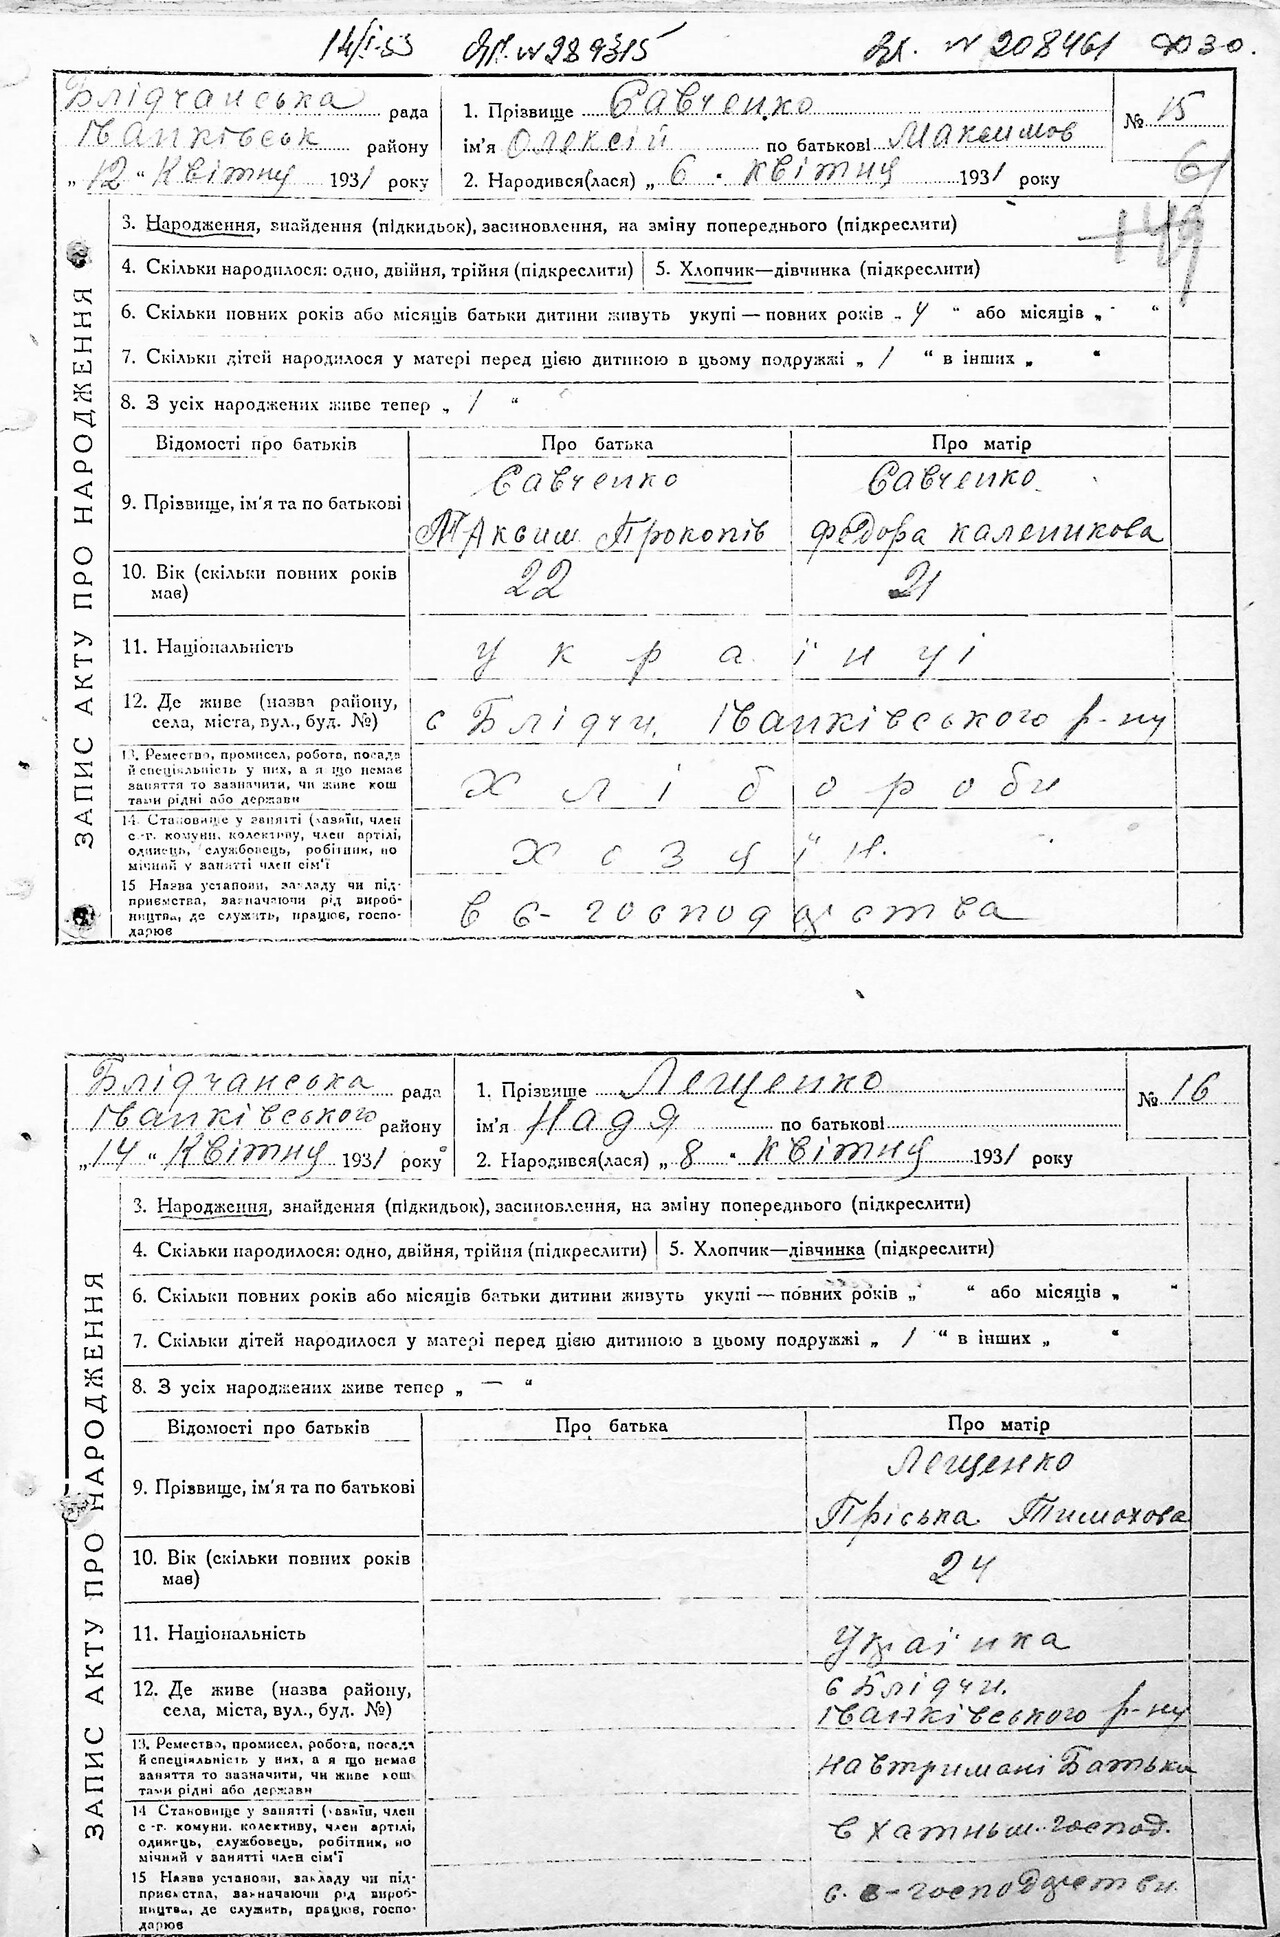 14/I-53 Др. № 289315 Вл. № 208461 ФОЗО.
Блідчанська рада
Іванківськ району
„12“ Квітну 1931 року
1. Прізвище Савченко
ім'я Олексій по батькові Максимов
2. Народився(лася) „6“ квітну 1931 року
№ 15
61
149
ЗАПИС АКТУ ПРО НАРОДЖЕННЯ
3. Народження, знайдення (підкидьок), засиновлення, на зміну попереднього (підкреслити)
4. Скільки народилося: одно, двійня, трійня (підкреслити) 5. Хлопчик—дівчинка (підкреслити)
6. Скільки повних років або місяців батьки дитини живуть укупі — повних років „ 4 “ або місяців „ - “
7. Скільки дітей народилося у матері перед цією дитиною в цьому подружжі „ 1 “ в інших „ “
8. З усіх народжених живе тепер „ 1 “
Відомості про батьків Про батька Про матір
9. Прізвище, ім'я та по батькові
Савченко Савченко
Максим Прокопів Федора каленикова
10. Вік (скільки повних років має) 22 21
11. Національність українці
12. Де живе (назва району, села, міста, вул., буд. №) с Блідчи, Іванківського р-ну
13. Ремество, промисел, робота, посада й спеціяльність у них, а я що немає заняття то зазначити, чи живе кош тами рідні або держави
хлібороби
14. Становище у занятті (хазяїн, член с.-г. комуни, колективу, член артілі, одинець, службовець, робітник, по мічний у занятті член сім'ї
хозяїн.
15 Назва установи, закладу чи під- приємства, зазначаючи рід вироб- ництва, де служить, працює, госпо- дарює
в с-господарства
Блідчанська рада
Іванківського району
„14“ Квітну 1931 року
1. Прізвище Лещенко
ім'я Надя по батькові
2. Народився(лася) „8“ квітну 1931 року
№ 16
ЗАПИС АКТУ ПРО НАРОДЖЕННЯ
3. Народження, знайдення (підкидьок), засиновлення, на зміну попереднього (підкреслити)
4. Скільки народилося: одно, двійня, трійня (підкреслити) 5. Хлопчик—дівчинка (підкреслити)
6. Скільки повних років або місяців батьки дитини живуть укупі — повних років „ “ або місяців „ “
7. Скільки дітей народилося у матері перед цією дитиною в цьому подружжі „ 1 “ в інших „ “
8. З усіх народжених живе тепер „ — “
Відомості про батьків Про батька Про матір
9. Прізвище, ім'я та по батькові
Лещенко
Пріська Тимохова
10. Вік (скільки повних років має) 24
11. Національність Українка
12. Де живе (назва району, села, міста, вул., буд. №)
с Блідчи.
Іванківського р-ну
13. Ремество, промисел, робота, посада й спеціяльність у них, а я що немає заняття то зазначити, чи живе кош тами рідні або держави
на втримані Батька
14 Становище у занятті (хазяїн, член с.-г. комуни, колективу, член артілі, одинець, службовець, робітник, по мічний у занятті член сім'ї
в хатньим. господ.
15 Назва установи, закладу чи під- приємства, зазначаючи рід вироб- ництва, де служить, працює, госпо- дарює
с.-господарстви.